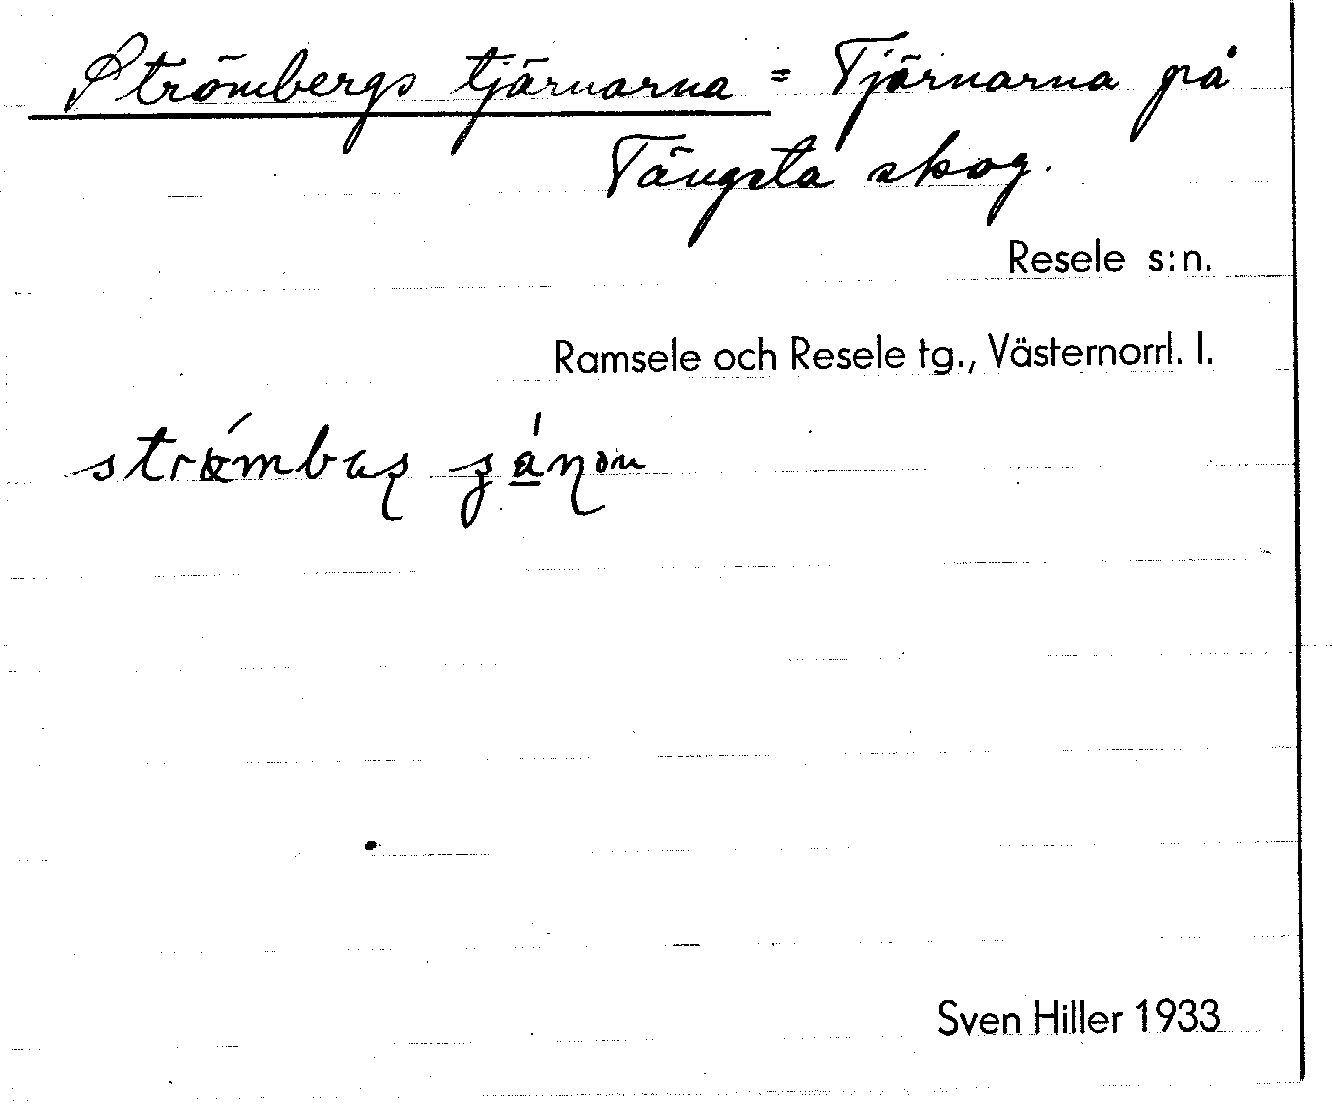 Strömbergs tjärnarna = Tjärnarna på
Tängsta skog.
Resele s:n.
Ramsele och Resele tg., Västernorrl. l.
Sven Hiller 1933